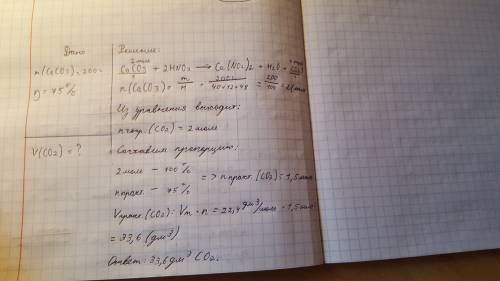 Дано
m(CaCO3) = 200г
η = 75%
V(CO2) = ?
Решение:
2 моль
CaCO3 + 2HNO3 → Ca(NO3)2 + H2O + CO2
1
n(CaCO3) = m/M = 200г/40+12+48 = 200/100 = 2(моль)
Из уравнения выходит:
nтеор.(CO2) = 2 моль
Составим пропорцию:
2 моль – 100%
nпракт. – 75% => nпракт.(CO2) = 1,5 моль
Vпракт(CO2) = Vm · n = 22,4 дм³/моль · 1,5 моль
= 33,6 (дм³)
Ответ: 33,6 дм³ CO2.